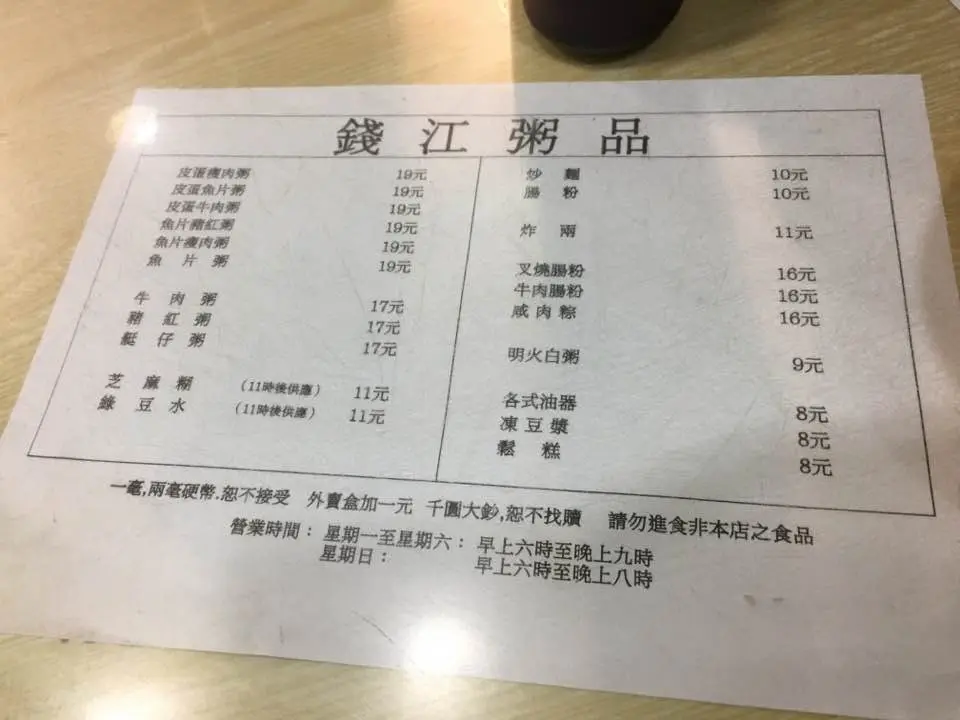 錢江粥品
皮蛋瘦肉粥 19元
皮蛋魚片粥 19元
皮蛋牛肉粥 19元
魚片豬紅粥 19元
魚片瘦肉粥 19元
魚片粥 19元
牛肉粥 17元
豬紅粥 17元
艇仔粥 17元
芝麻糊 (11時後供應) 11元
綠豆水 (11時後供應) 11元
炒麵 10元
腸粉 10元
炸兩 11元
叉燒腸粉 16元
牛肉腸粉 16元
咸肉粽 16元
明火白粥 9元
各式油器 8元
凍豆漿 8元
鬆糕 8元
一毫,兩毫硬幣.恕不接受 外賣盒加一元 千圓大鈔,恕不找贖 請勿進食非本店之食品
營業時間： 星期一至星期六： 早上六時至晚上九時
星期日： 早上六時至晚上八時